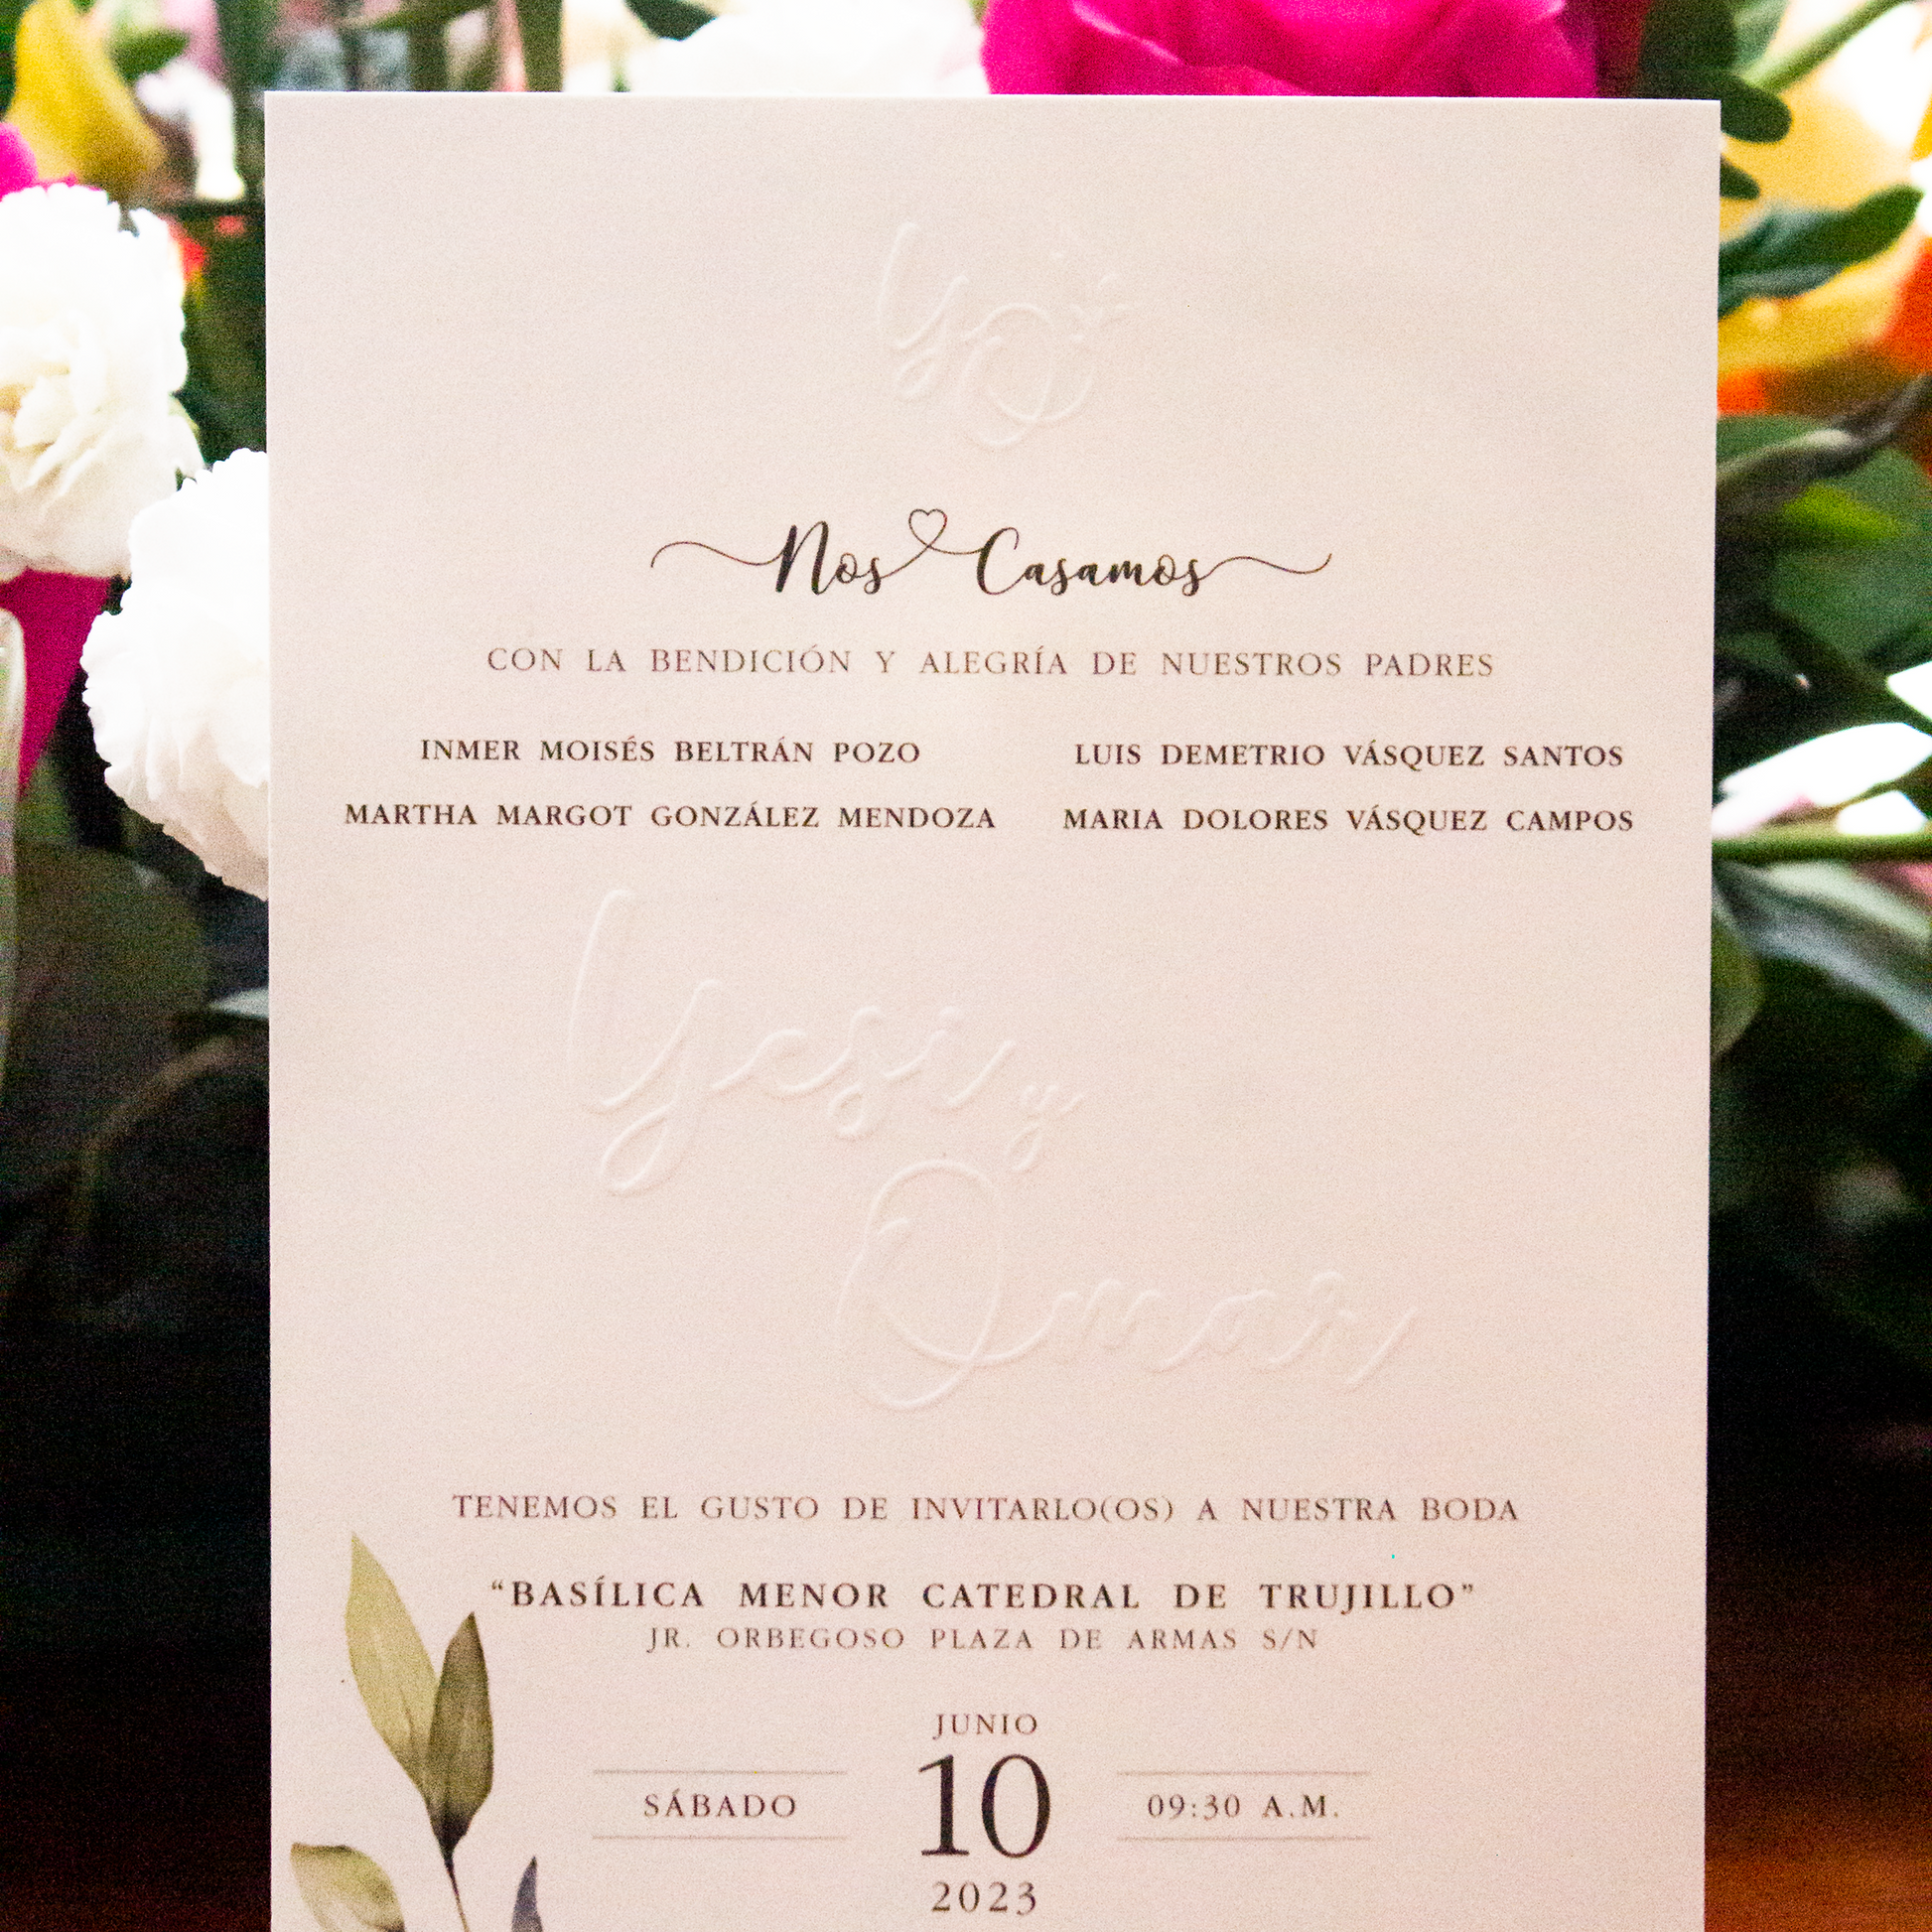 YO
Nos Casamos
CON LA BENDICIÓN Y ALEGRÍA DE NUESTROS PADRES
INMER MOISÉS BELTRÁN POZO
MARTHA MARGOT GONZÁLEZ MENDOZA
LUIS DEMETRIO VÁSQUEZ SANTOS
MARIA DOLORES VÁSQUEZ CAMPOS
Yesi y
Omar
TENEMOS EL GUSTO DE INVITARLO(OS) A NUESTRA BODA
“BASÍLICA MENOR CATEDRAL DE TRUJILLO”
JR. ORBEGOSO PLAZA DE ARMAS S/N
JUNIO
SÁBADO
10
09:30 A.M.
2023